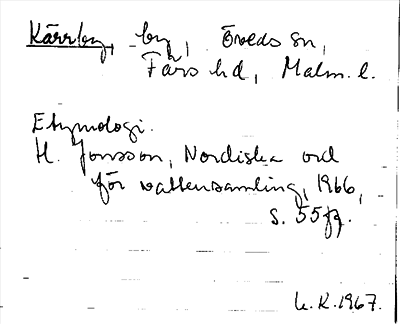 Kärrby, by, Öveds sn,
Färs hd, Malm. l.
Etymologi.
H. Jonsson, Nordiska ord
för vattensamling, 1966,
s. 55ff.
U.R.1967.